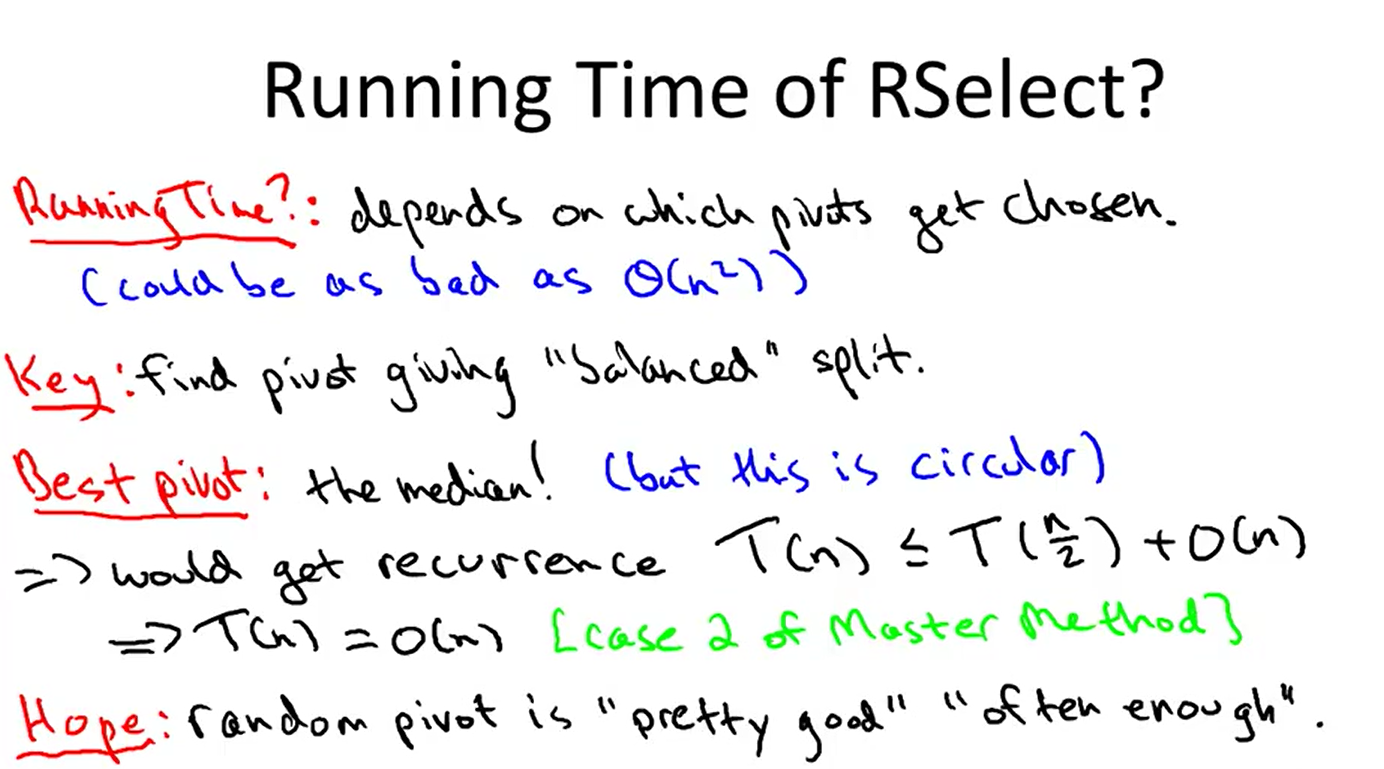 Running Time of RSelect?
Running Time?: depends on which pivots get chosen.
(could be as bad as Θ(n²))
Key: find pivot giving "balanced" split.
Best pivot: the median! (but this is circular)
=> would get recurrence T(n) ≤ T(n/2) + O(n)
=> T(n) = O(n) [case 2 of Master Method]
Hope: random pivot is "pretty good" "often enough".